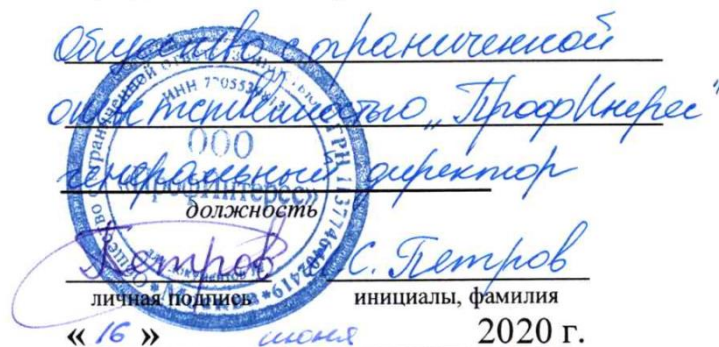 Общество с ограниченной
ответственностью „ПрофИнтерес”
генеральный директор
ООО
должность
Петров С. Петров
личная подпись инициалы, фамилия
« 16 » июня 2020 г.